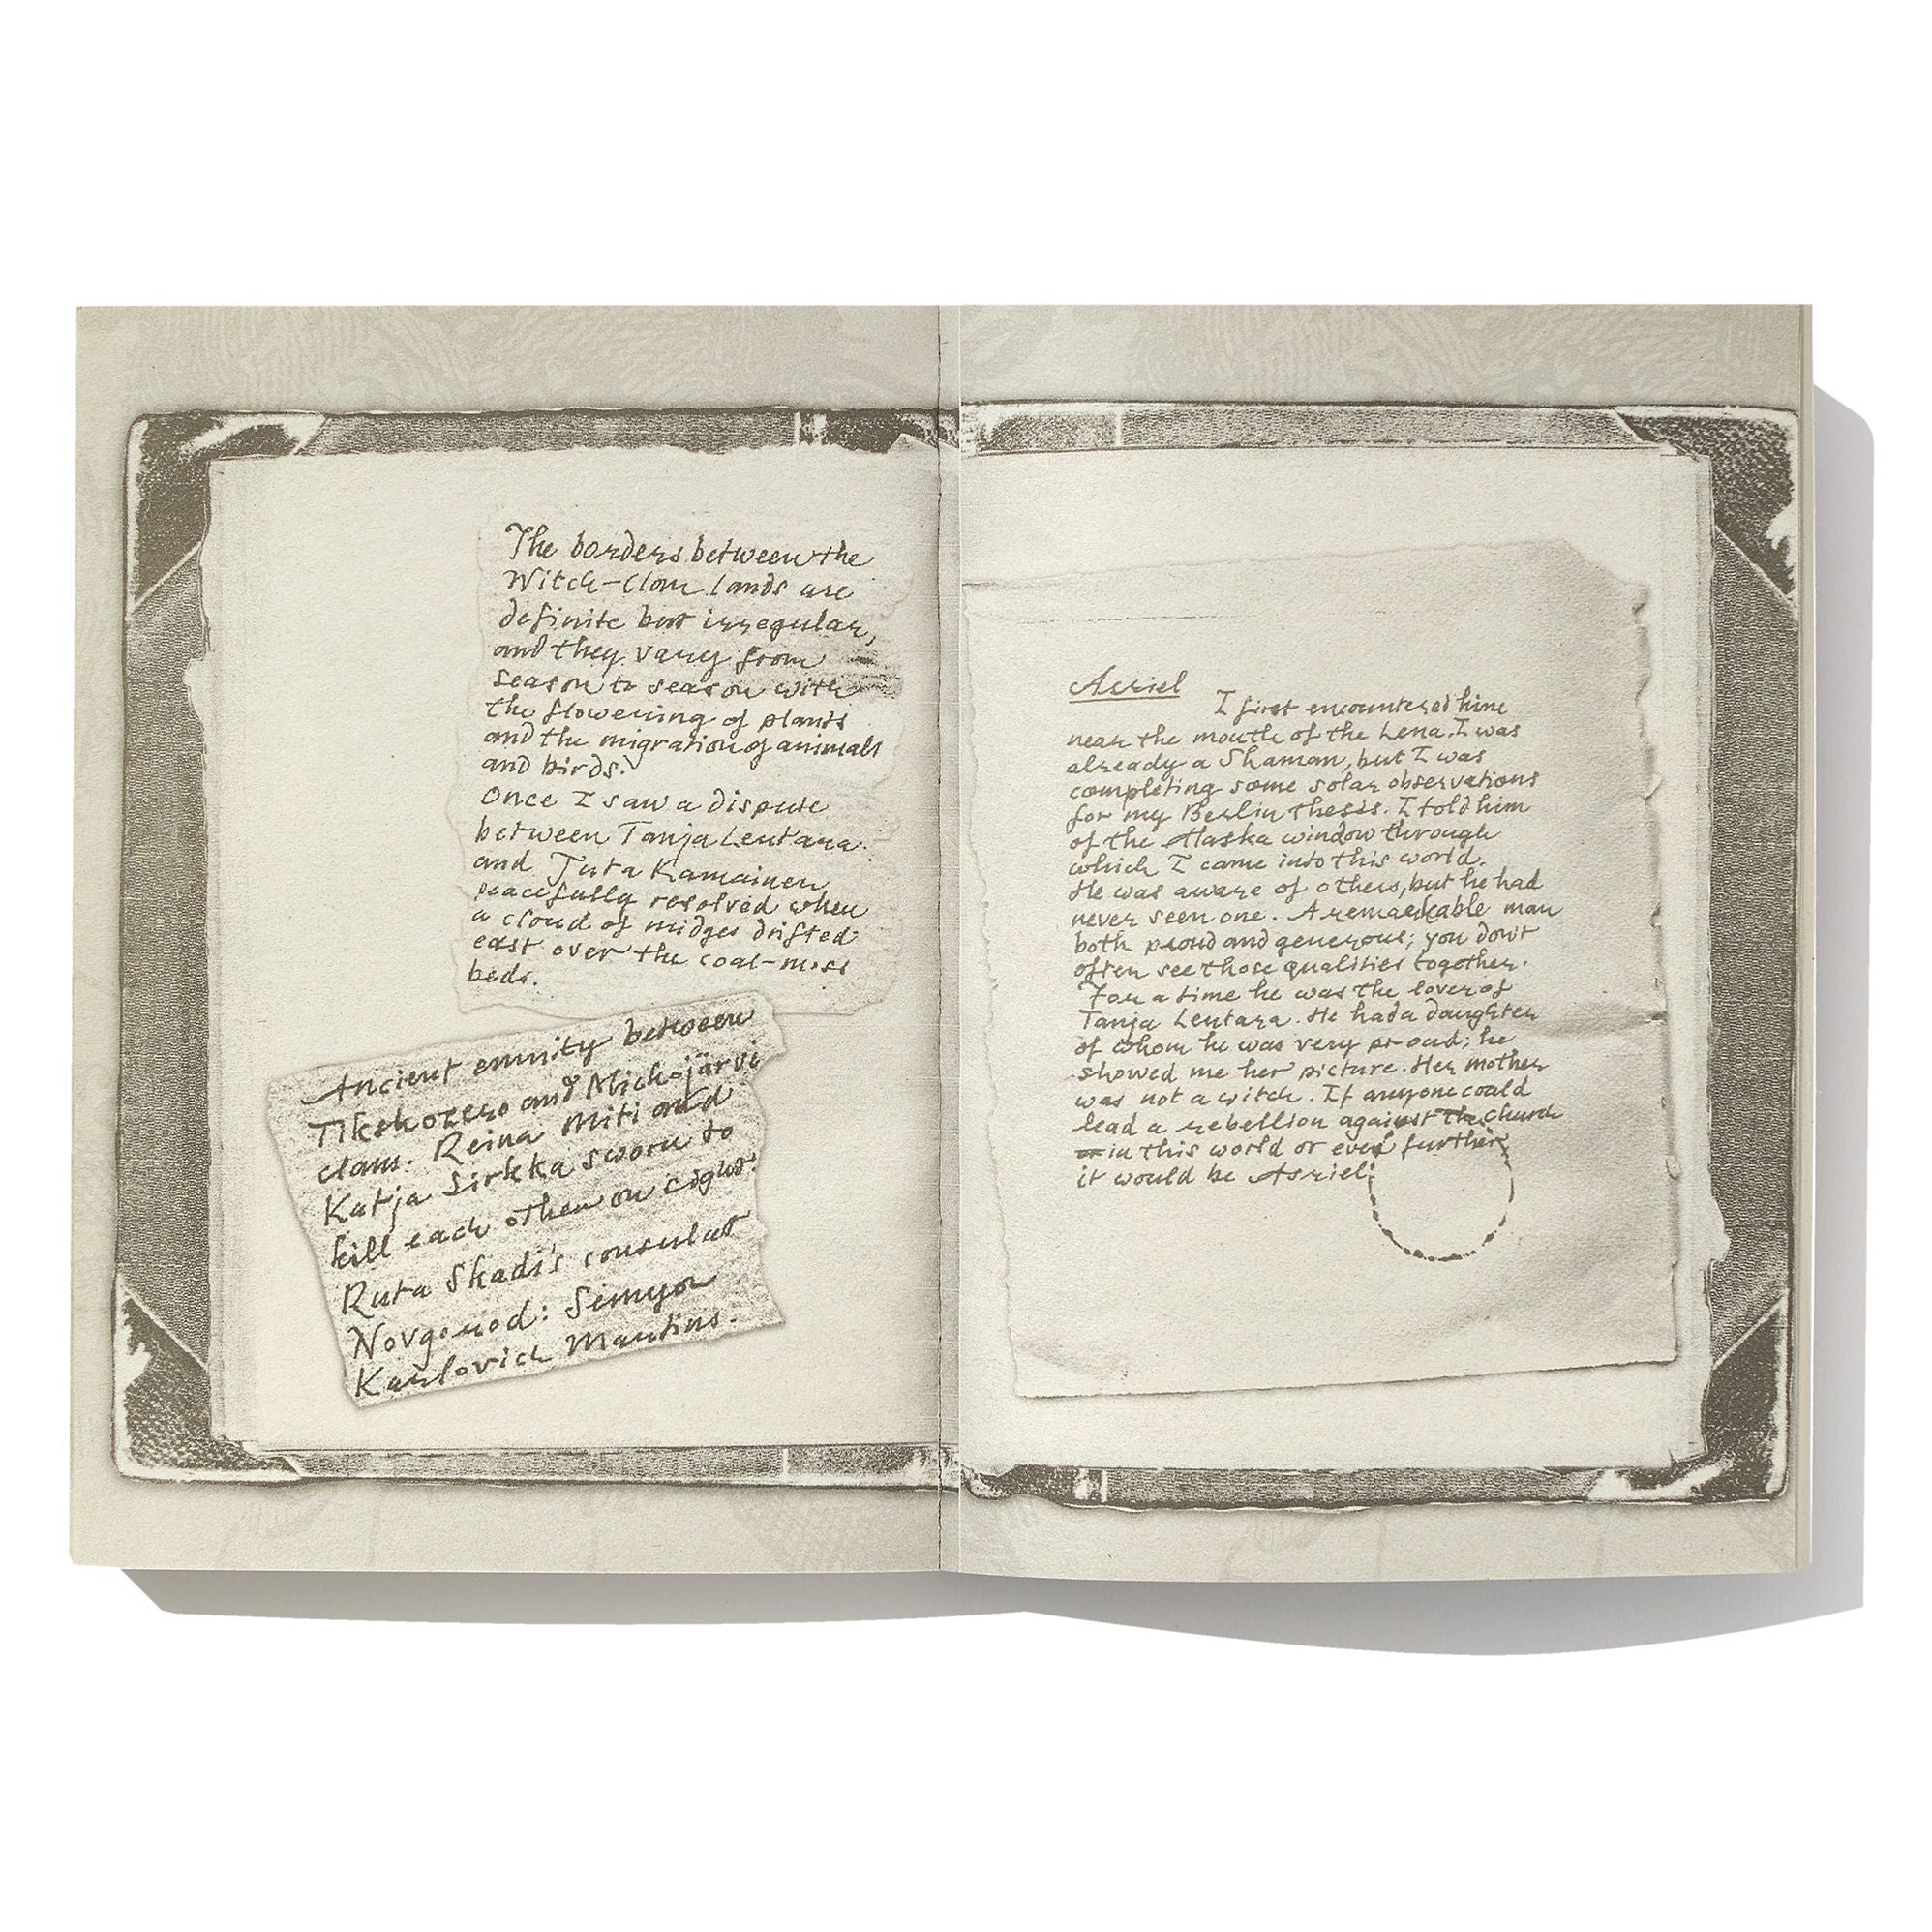 The borders between the
Witch-clan lands are
definite but irregular,
and they vary from
season to season with
the flowering of plants
and the migration of animals
and birds.
Once I saw a dispute
between Tanja Lentara
and Juta Kamainen
peacefully resolved when
a cloud of midges drifted
east over the coal-moss
beds.
Ancient enmity between
Tikshozero and Mickojärvi
clans. Reina Miti and
Katja Sirkka sworn to
kill each other on sight.
Ruta Skadi's consul at
Novgorod: Semyon
Karlovich Martins.
Asriel
I first encountered him
near the mouth of the Lena. I was
already a Shaman, but I was
completing some solar observations
for my Berlin thesis. I told him
of the Alaska window through
which I came into this world.
He was aware of others, but he had
never seen one. A remarkable man
both proud and generous; you don't
often see those qualities together.
For a time he was the lover of
Tanja Lentara. He had a daughter
of whom he was very proud; he
showed me her picture. Her mother
was not a witch. If anyone could
lead a rebellion against the church
or in this world or even further,
it would be Asriel.